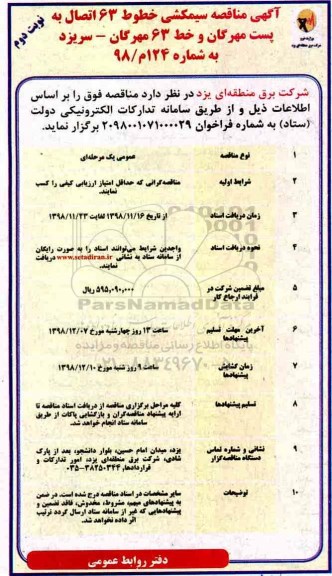 آگهی مناقصه سیمکشی خطوط ۶۳ اتصال به
پست مهرگان و خط ۶۳ مهرگان - سریزد
به شماره ۱۲۴/م/۹۸
نوبت دوم
شرکت برق منطقه‌ای یزد در نظر دارد مناقصه فوق را بر اساس
اطلاعات ذیل و از طریق سامانه تدارکات الکترونیکی دولت
(ستاد) به شماره فراخوان ۲۰۹۸۰۰۱۰۷۱۰۰۰۰۲۹ برگزار نماید.
۱ نوع مناقصه عمومی یک مرحله‌ای
۲ شرایط اولیه مناقصه‌گرانی که حداقل امتیاز ارزیابی کیفی را کسب
نمایند.
۳ زمان دریافت اسناد از تاریخ ۱۳۹۸/۱۱/۱۶ لغایت ۱۳۹۸/۱۱/۲۳
۴ نحوه دریافت اسناد واجدین شرایط می‌توانند اسناد را به صورت رایگان
از سامانه ستاد به نشانی www.setadiran.ir دریافت
نمایند.
۵ مبلغ تضمین شرکت در
فرآیند ارجاع کار
۵۹۵,۰۹۰,۰۰۰ ریال
۶ آخرین مهلت تسلیم
پیشنهادها
ساعت ۱۳ روز چهارشنبه مورخ ۱۳۹۸/۱۲/۰۷
۷ زمان گشایش
پیشنهادها
ساعت ۹ روز شنبه مورخ ۱۳۹۸/۱۲/۱۰
۸ تسلیم پیشنهادها کلیه مراحل برگزاری مناقصه از دریافت اسناد مناقصه تا
ارایه پیشنهاد مناقصه‌گران و بازگشایی پاکات از طریق
سامانه ستاد انجام خواهد شد.
۹ نشانی و شماره تماس
دستگاه مناقصه‌گزار
یزد، میدان امام حسین، بلوار دانشجو، بعد از پارک
شادی، شرکت برق منطقه‌ای یزد، امور تدارکات و
قراردادها، ۳۸۲۵۰۳۴۴-۰۳۵
۱۰ توضیحات سایر مشخصات در اسناد مناقصه درج شده است. در ضمن
به پیشنهادهای مبهم، مشروط، مخدوش، فاقد تضمین و
پیشنهادهایی که غیر از سامانه ستاد ارسال گردد ترتیب
اثر داده نخواهد شد.
دفتر روابط عمومی
ParsNamadData
پایگاه اطلاع رسانی مناقصه و مزایده